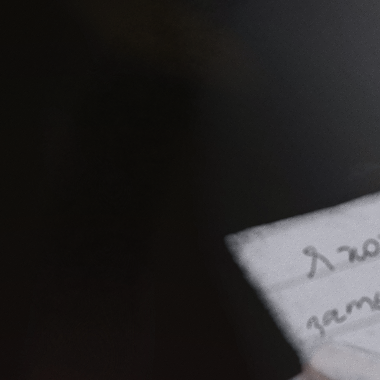 Я хо
заме